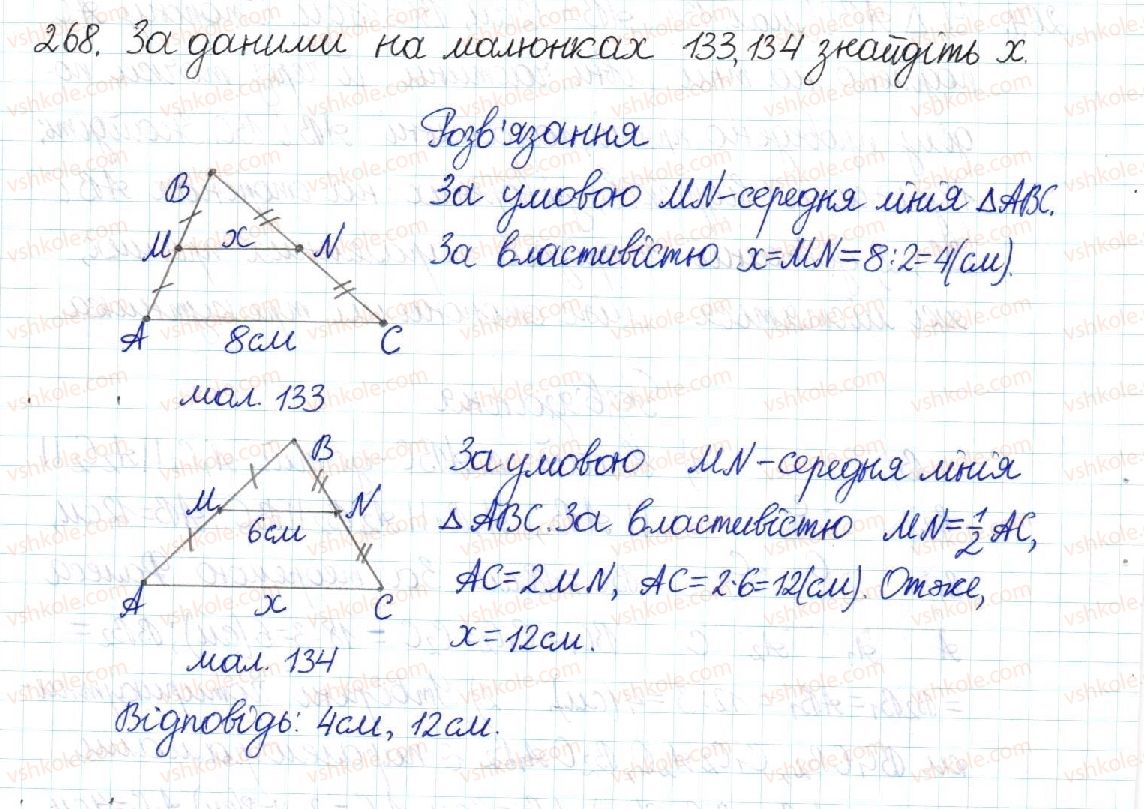 268. За даними на малюнках 133,134 знайдіть x.
Розв'язання
B
M x N
A 8см C
мал. 133
За умовою MN-середня лінія △ABC.
За властивістю x=MN=8:2=4(см).
B
M N
6см
A x C
мал. 134
За умовою MN-середня лінія
△ABC. За властивістю MN=1/2 AC,
AC=2MN, AC=2·6=12(см). Отже,
x=12см.
Відповідь: 4см, 12см.
vshkole.com